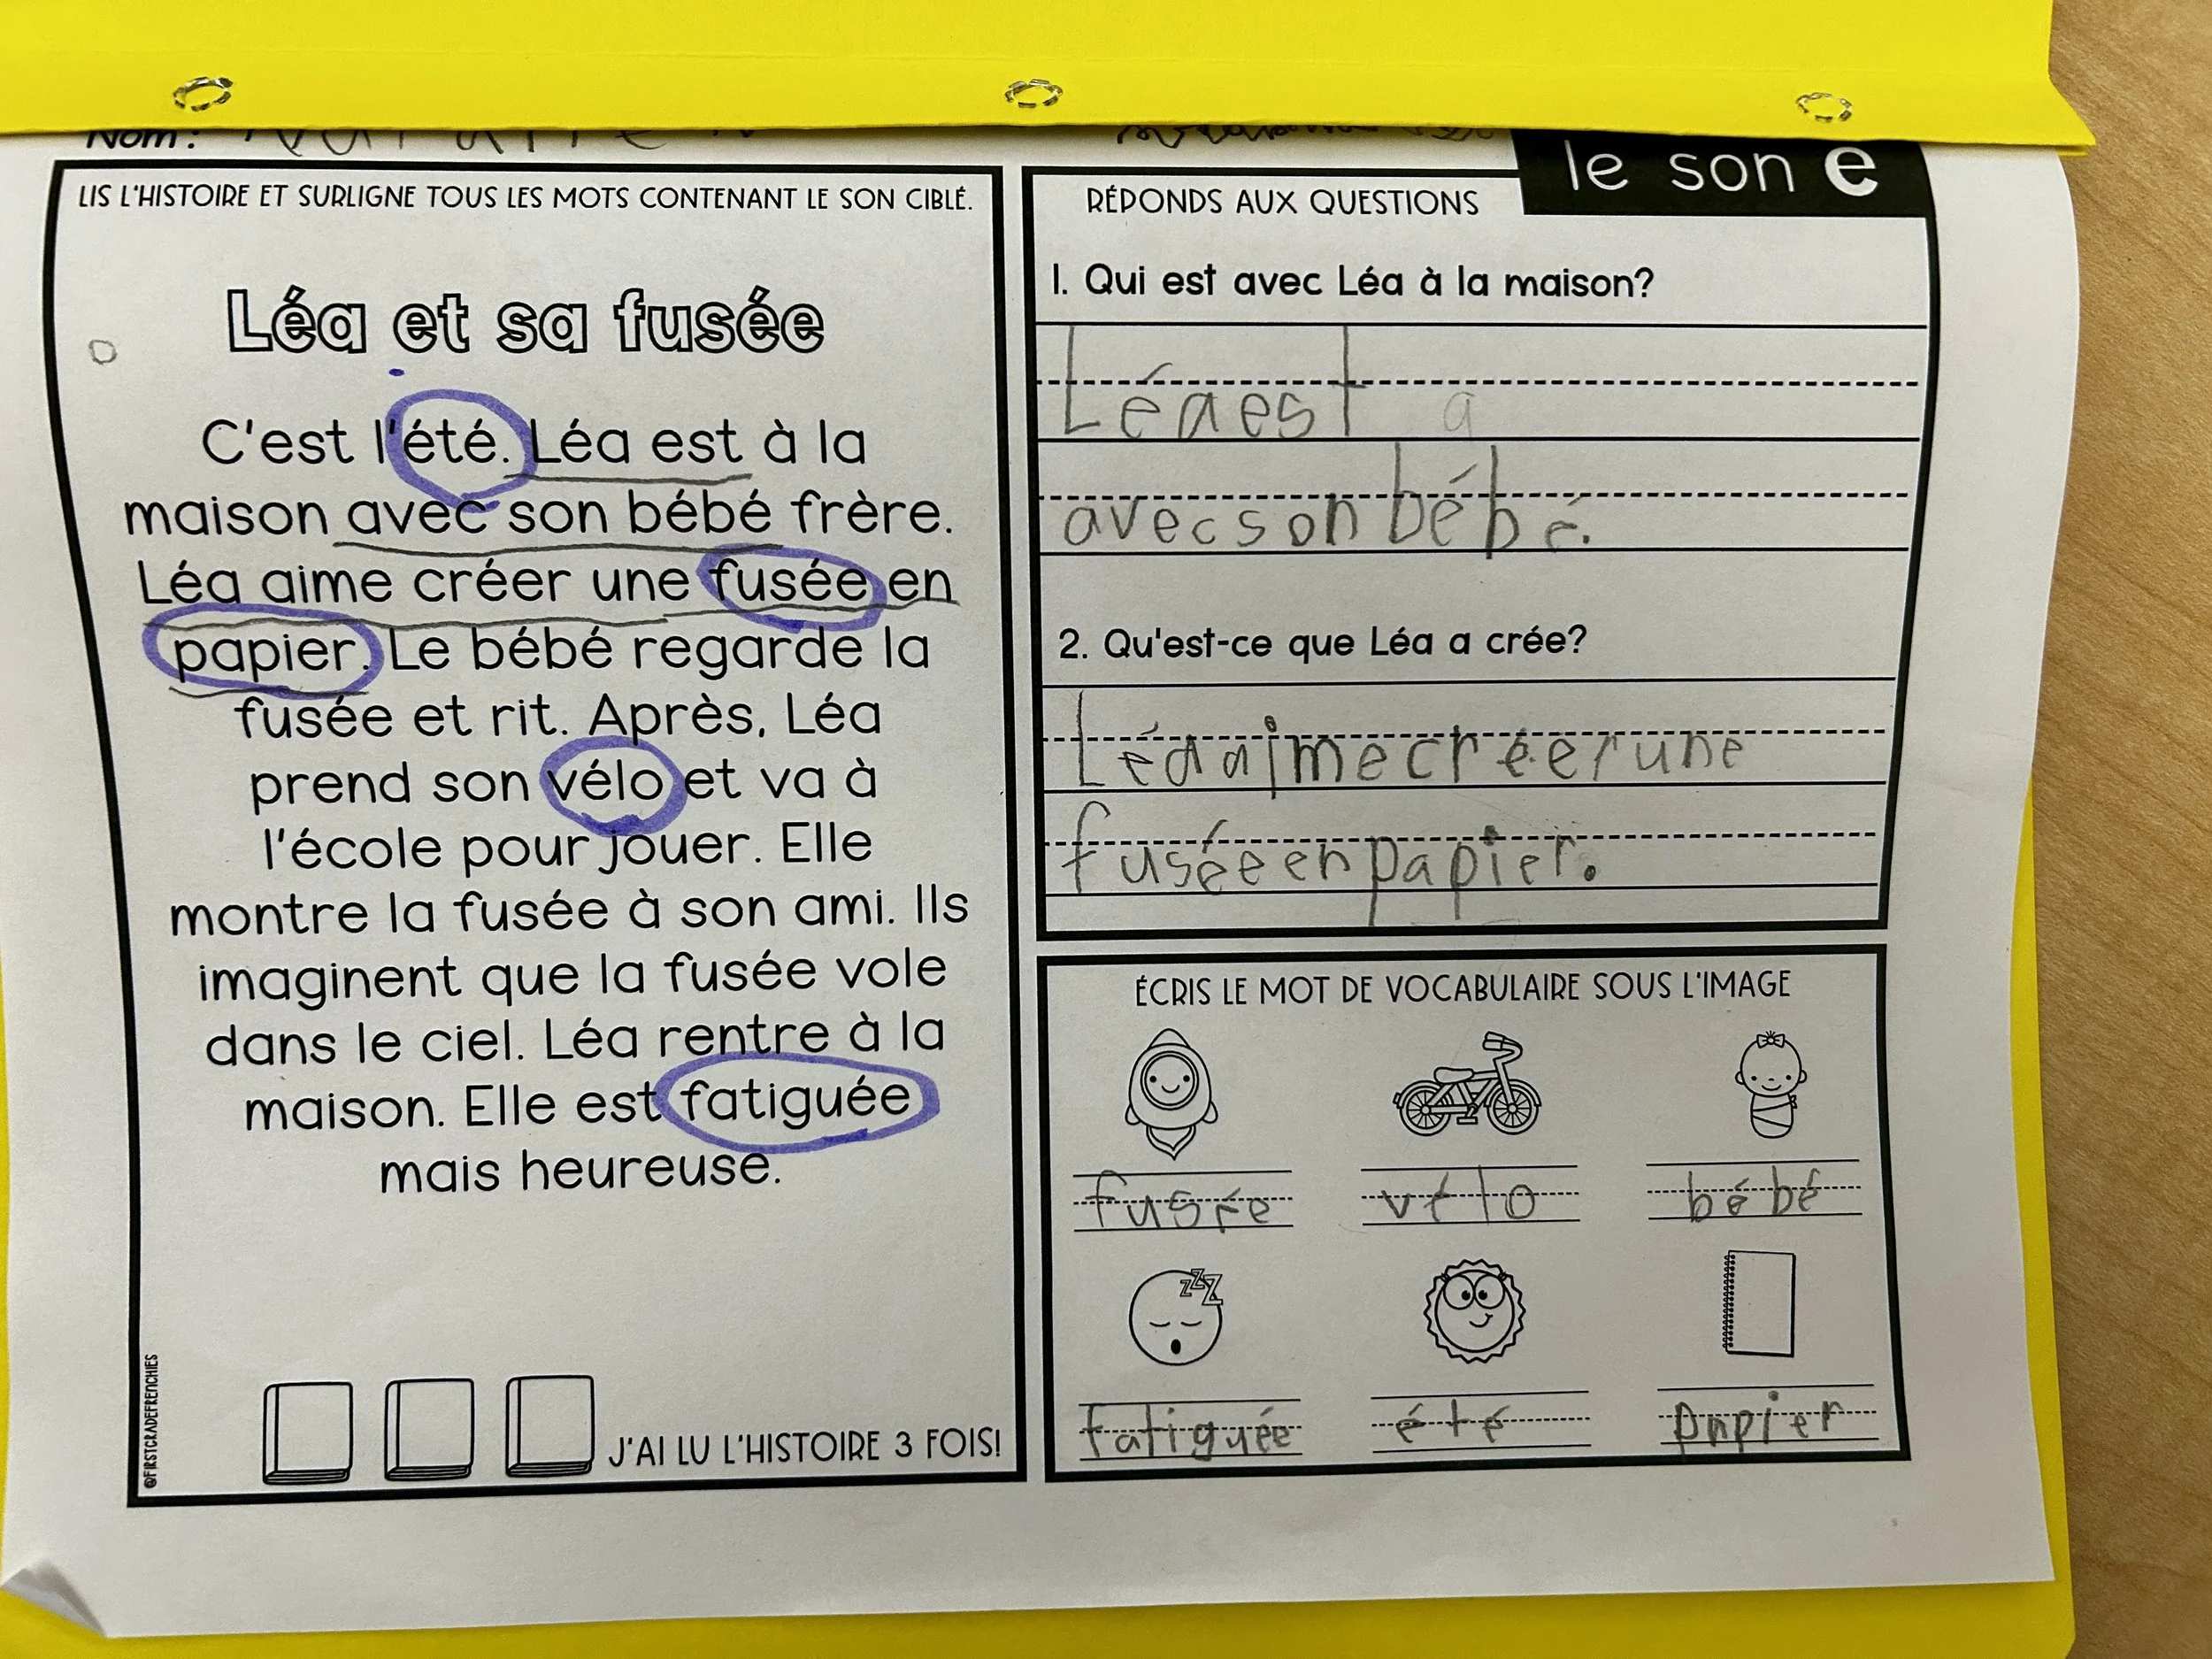 Nom :
le son e
LIS L'HISTOIRE ET SURLIGNE TOUS LES MOTS CONTENANT LE SON CIBLÉ.
Léa et sa fusée
C'est l'été. Léa est à la
maison avec son bébé frère.
Léa aime créer une fusée en
papier. Le bébé regarde la
fusée et rit. Après, Léa
prend son vélo et va à
l'école pour jouer. Elle
montre la fusée à son ami. Ils
imaginent que la fusée vole
dans le ciel. Léa rentre à la
maison. Elle est fatiguée
mais heureuse.
J'AI LU L'HISTOIRE 3 FOIS!
@FIRSTGRADEFRENCHIES
RÉPONDS AUX QUESTIONS
1. Qui est avec Léa à la maison?
Léa est a
avec son bébé.
2. Qu'est-ce que Léa a crée?
Léa aime créer une
fusée en papier.
ÉCRIS LE MOT DE VOCABULAIRE SOUS L'IMAGE
fusée vélo bébé
zzz
fatiguée été papier